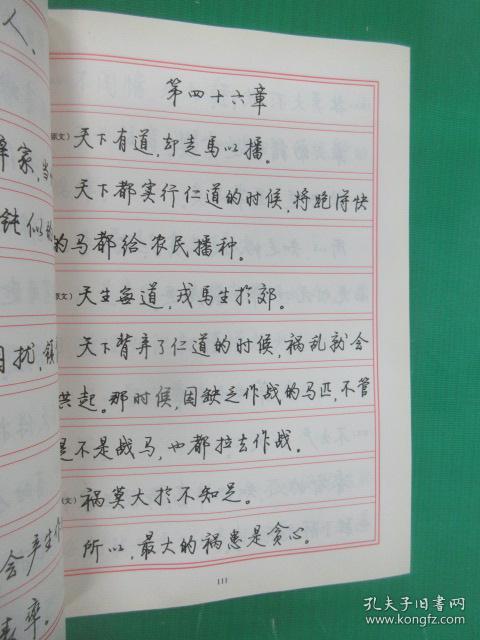 人、
家，
钝似
日扰，
会产生
表率。
第四十六章
原文）天下有道，却走馬以播。
天下都实行仁道的时候，将跑得快
的马都给农民播种。
原文）天生每道，戎馬生於郊。
天下背弃了仁道的时候，祸乱就会
起。那时候，因缺乏作战的马匹，不管
是不是战马，也都拉去作战。
文）祸莫大於不知足。
所以，最大的祸患是贪心。
111
孔夫子旧书网